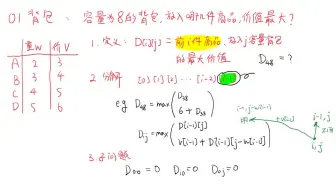 01 背包: 容量为8的背包,放入哪几件商品,价值最大?
重W 价V
A 2 3
B 3 4
C 4 5
D 5 6
1. 定义: D[i][j] = 前i件商品,放入j容量背包
的最大价值
D48 = ?
2. 分解 [0] [1] [2] ... [i-2]
e.g D48 = max( D38
6 + D33
Dij = max( D[i-1][j]
v[i-1] + D[i-1][j-w[i-1]]
i-1, j
i, j
3. 子问题
D00 = 0 Di0 = 0 D0j = 0